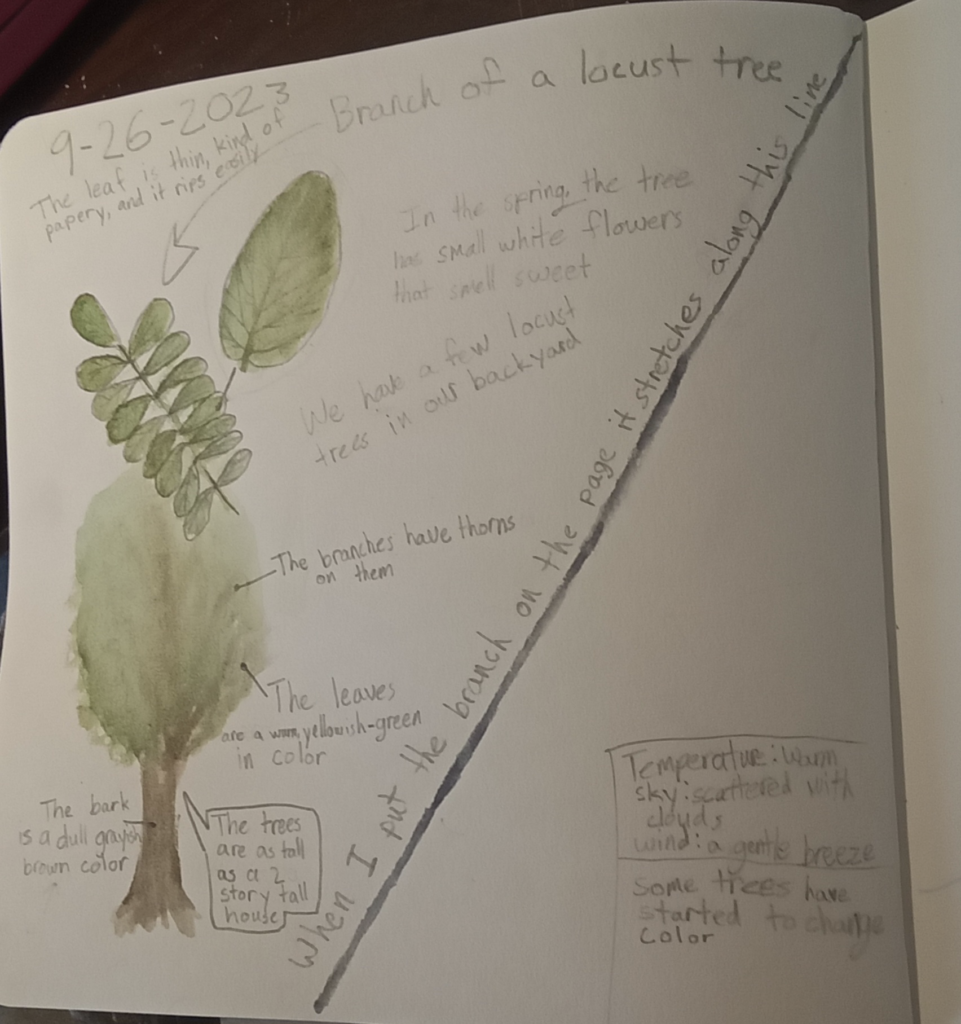 9-26-2023
Branch of a locust tree
The leaf is thin, kind of
papery, and it rips easily
In the spring, the tree
has small white flowers
that smell sweet
We have a few locust
trees in our backyard
The branches have thorns
on them
The leaves
are a warm, yellowish-green
in color
The bark
is a dull grayish
brown color
The trees
are as tall
as a 2
story tall
house
When I put the branch on the page it stretches along this line
Temperature: warm
sky: scattered with
clouds
wind: a gentle breeze
some trees have
started to change
color